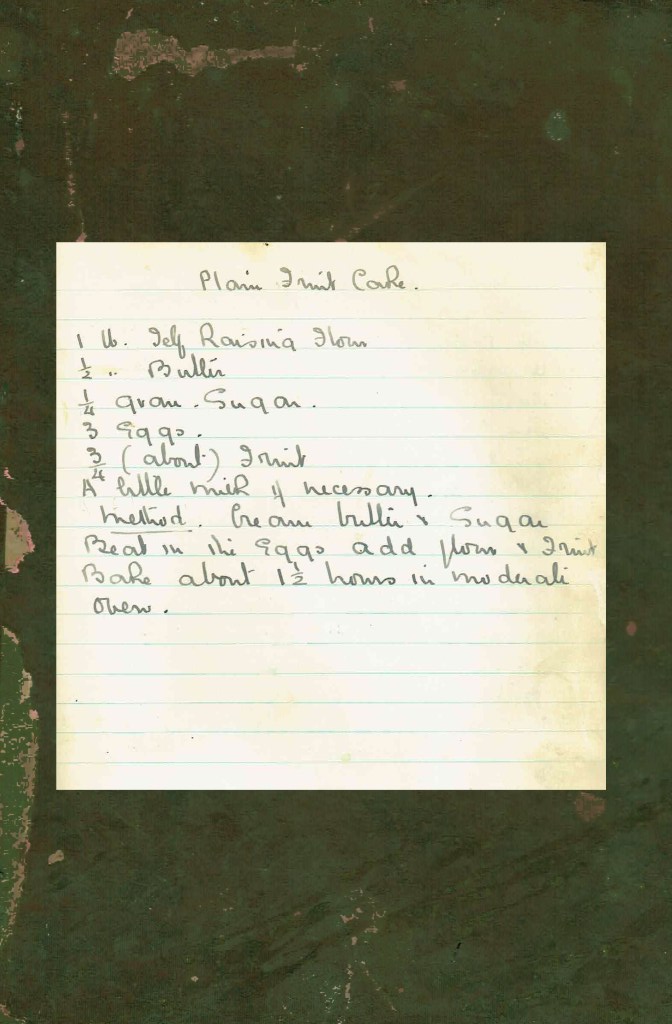 Plain Fruit Cake.
1 lb. Self Raising Flour
½ " Butter
¼ gran. Sugar.
3 Eggs.
¾ (about) Fruit
A little milk if necessary.
Method. Cream butter & Sugar
Beat in the Eggs add flour & Fruit
Bake about 1½ hours in moderate
oven.